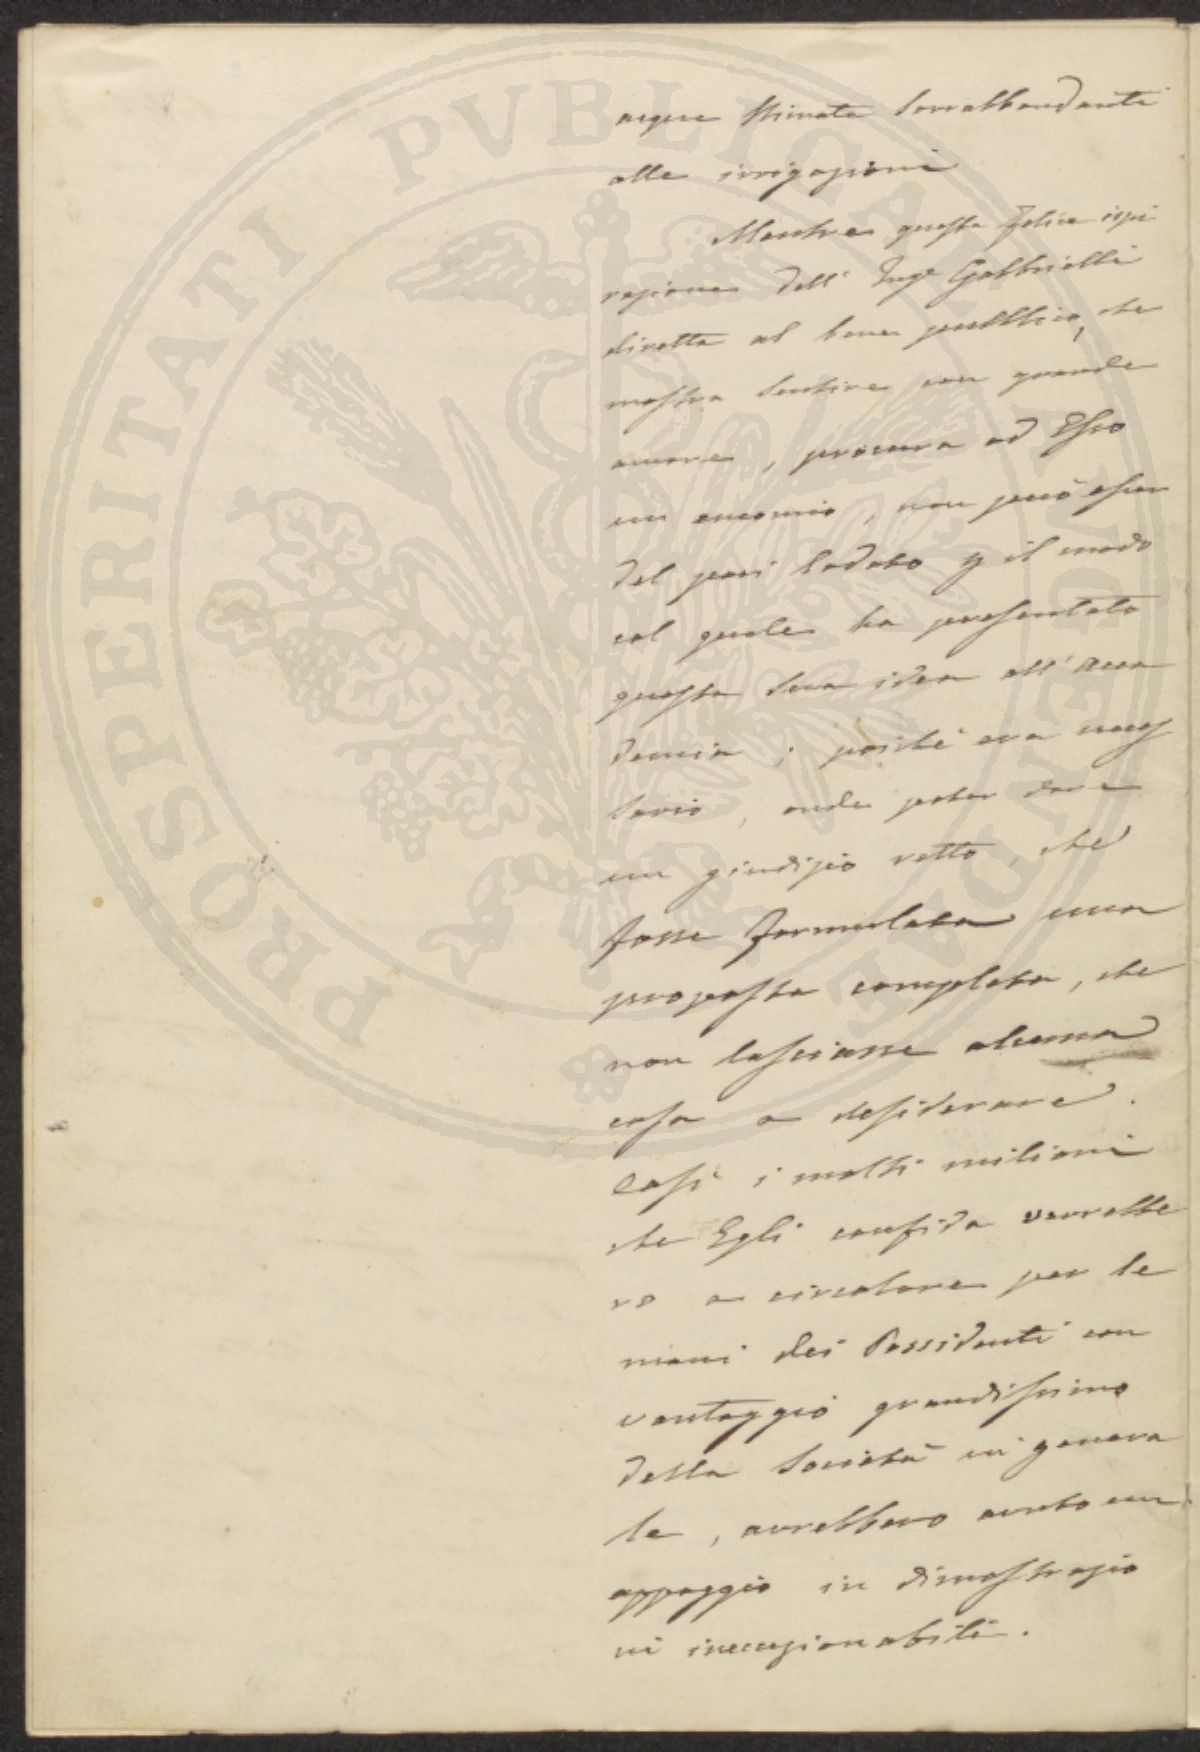 acque stimate sovrabbondanti
alle irrigazioni
Mentre questa felice ispi
razione dell' Inge Gabbrielli
diretta al bene pubblico, che
mostra sentire con grande
amore, procura ad Esso
un encomio, non può esser
del pari lodato p il modo
col quale ha presentato
questa sua idea all' Acca
demia; poichè era neces
sario, onde poter dare
un giudizio retto, che
fosse formulata una
proposta completa, che
non lasciasse alcuna
cosa a desiderare.
Così i molti milioni
che Egli confida verrebbe
ro a circolare per le
mani dei Possidenti con
vantaggio grandissimo
della Società in genera
le, avrebbero avuto un
appoggio in dimostrazio
ni ineccezionabili.
PROSPERITATI PVBLICAE AVGENDAE